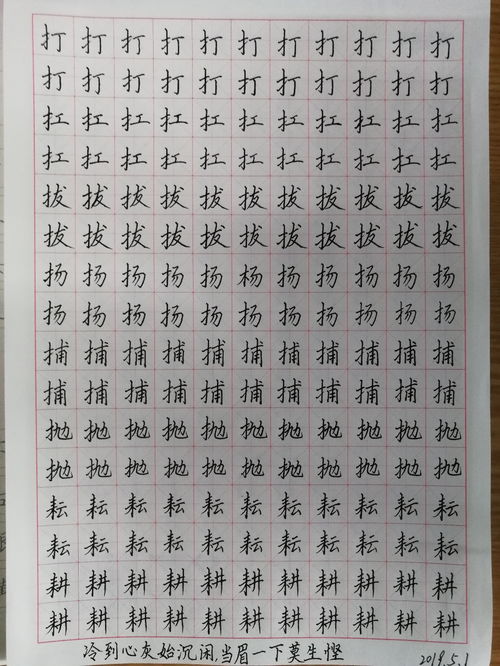 打打打打打打打打打打打
打打打打打打打打打打打
扛扛扛扛扛扛扛扛扛扛扛
扛扛扛扛扛扛扛扛扛扛扛
拔拔拔拔拔拔拔拔拔拔拔
拔拔拔拔拔拔拔拔拔拔拔
扬扬扬扬扬杨扬扬扬扬扬
扬扬扬扬扬扬扬扬扬扬扬
捕捕捕捕捕捕捕捕捕捕捕
捕捕捕捕捕捕捕捕捕捕捕
抛抛抛抛抛抛抛抛抛抛抛
抛抛抛抛抛抛抛抛抛抛抛
耘耘耘耘耘耘耘耘耘耘耘
耘耘耘耘耘耘耘耘耘耘耘
耕耕耕耕耕耕耕耕耕耕耕
耕耕耕耕耕耕耕耕耕耕耕
冷到心灰始沉闲,当眉一下莫生悭 2019.5.1